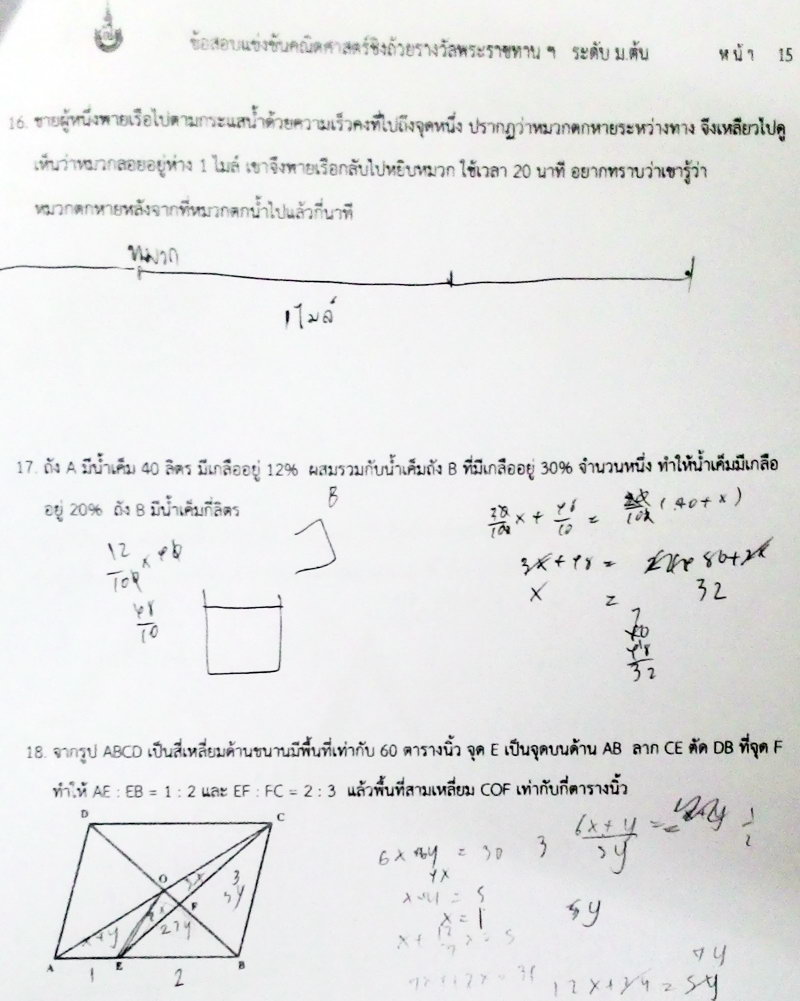 ข้อสอบแข่งขันคณิตศาสตร์ชิงถ้วยรางวัลพระราชทาน ฯ ระดับ ม.ต้น หน้า 15
16. ชายผู้หนึ่งพายเรือไปตามกระแสน้ำด้วยความเร็วคงที่ไปถึงจุดหนึ่ง ปรากฏว่าหมวกตกหายระหว่างทาง จึงเหลียวไปดู
เห็นว่าหมวกลอยอยู่ห่าง 1 ไมล์ เขาจึงพายเรือกลับไปหยิบหมวก ใช้เวลา 20 นาที อยากทราบว่าเขารู้ว่า
หมวกตกหายหลังจากที่หมวกตกน้ำไปแล้วกี่นาที
หมวก
1 ไมล์
17. ถัง A มีน้ำเค็ม 40 ลิตร มีเกลืออยู่ 12% ผสมรวมกับน้ำเค็มถัง B ที่มีเกลืออยู่ 30% จำนวนหนึ่ง ทำให้น้ำเค็มมีเกลือ
อยู่ 20% ถัง B มีน้ำเค็มกี่ลิตร
B
12/100 × 40
48/10
30/100 x + 48/10 = 20/100 (40+x)
3x + 48 = 80+2x
x = 32
48
32
18. จากรูป ABCD เป็นสี่เหลี่ยมด้านขนานมีพื้นที่เท่ากับ 60 ตารางนิ้ว จุด E เป็นจุดบนด้าน AB ลาก CE ตัด DB ที่จุด F
ทำให้ AE : EB = 1 : 2 และ EF : FC = 2 : 3 แล้วพื้นที่สามเหลี่ยม COF เท่ากับกี่ตารางนิ้ว
D C
O
3x
3
3y
F
2x
x+y
2y
A E B
1 2
= 30
3
6x+y
x = 1
5y
7y
12x+ = 5y